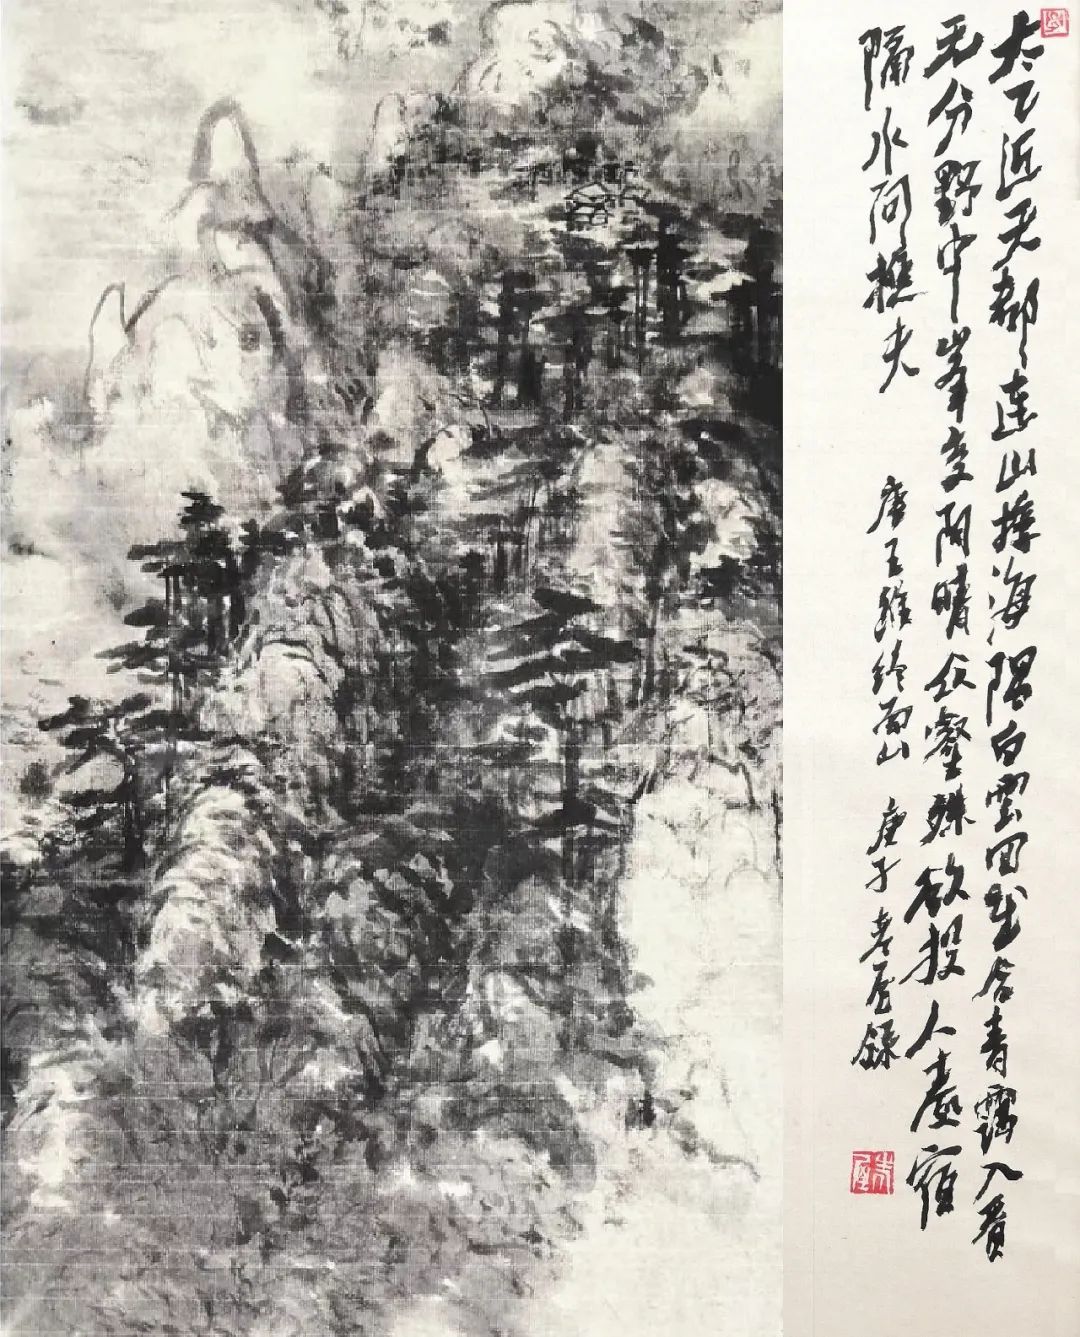 太乙近天都連山接海隅白雲回望合青靄入看
无分野中峯变阴晴众壑殊欲投人處宿
隔水问樵夫 唐王維终南山 庚子 錄